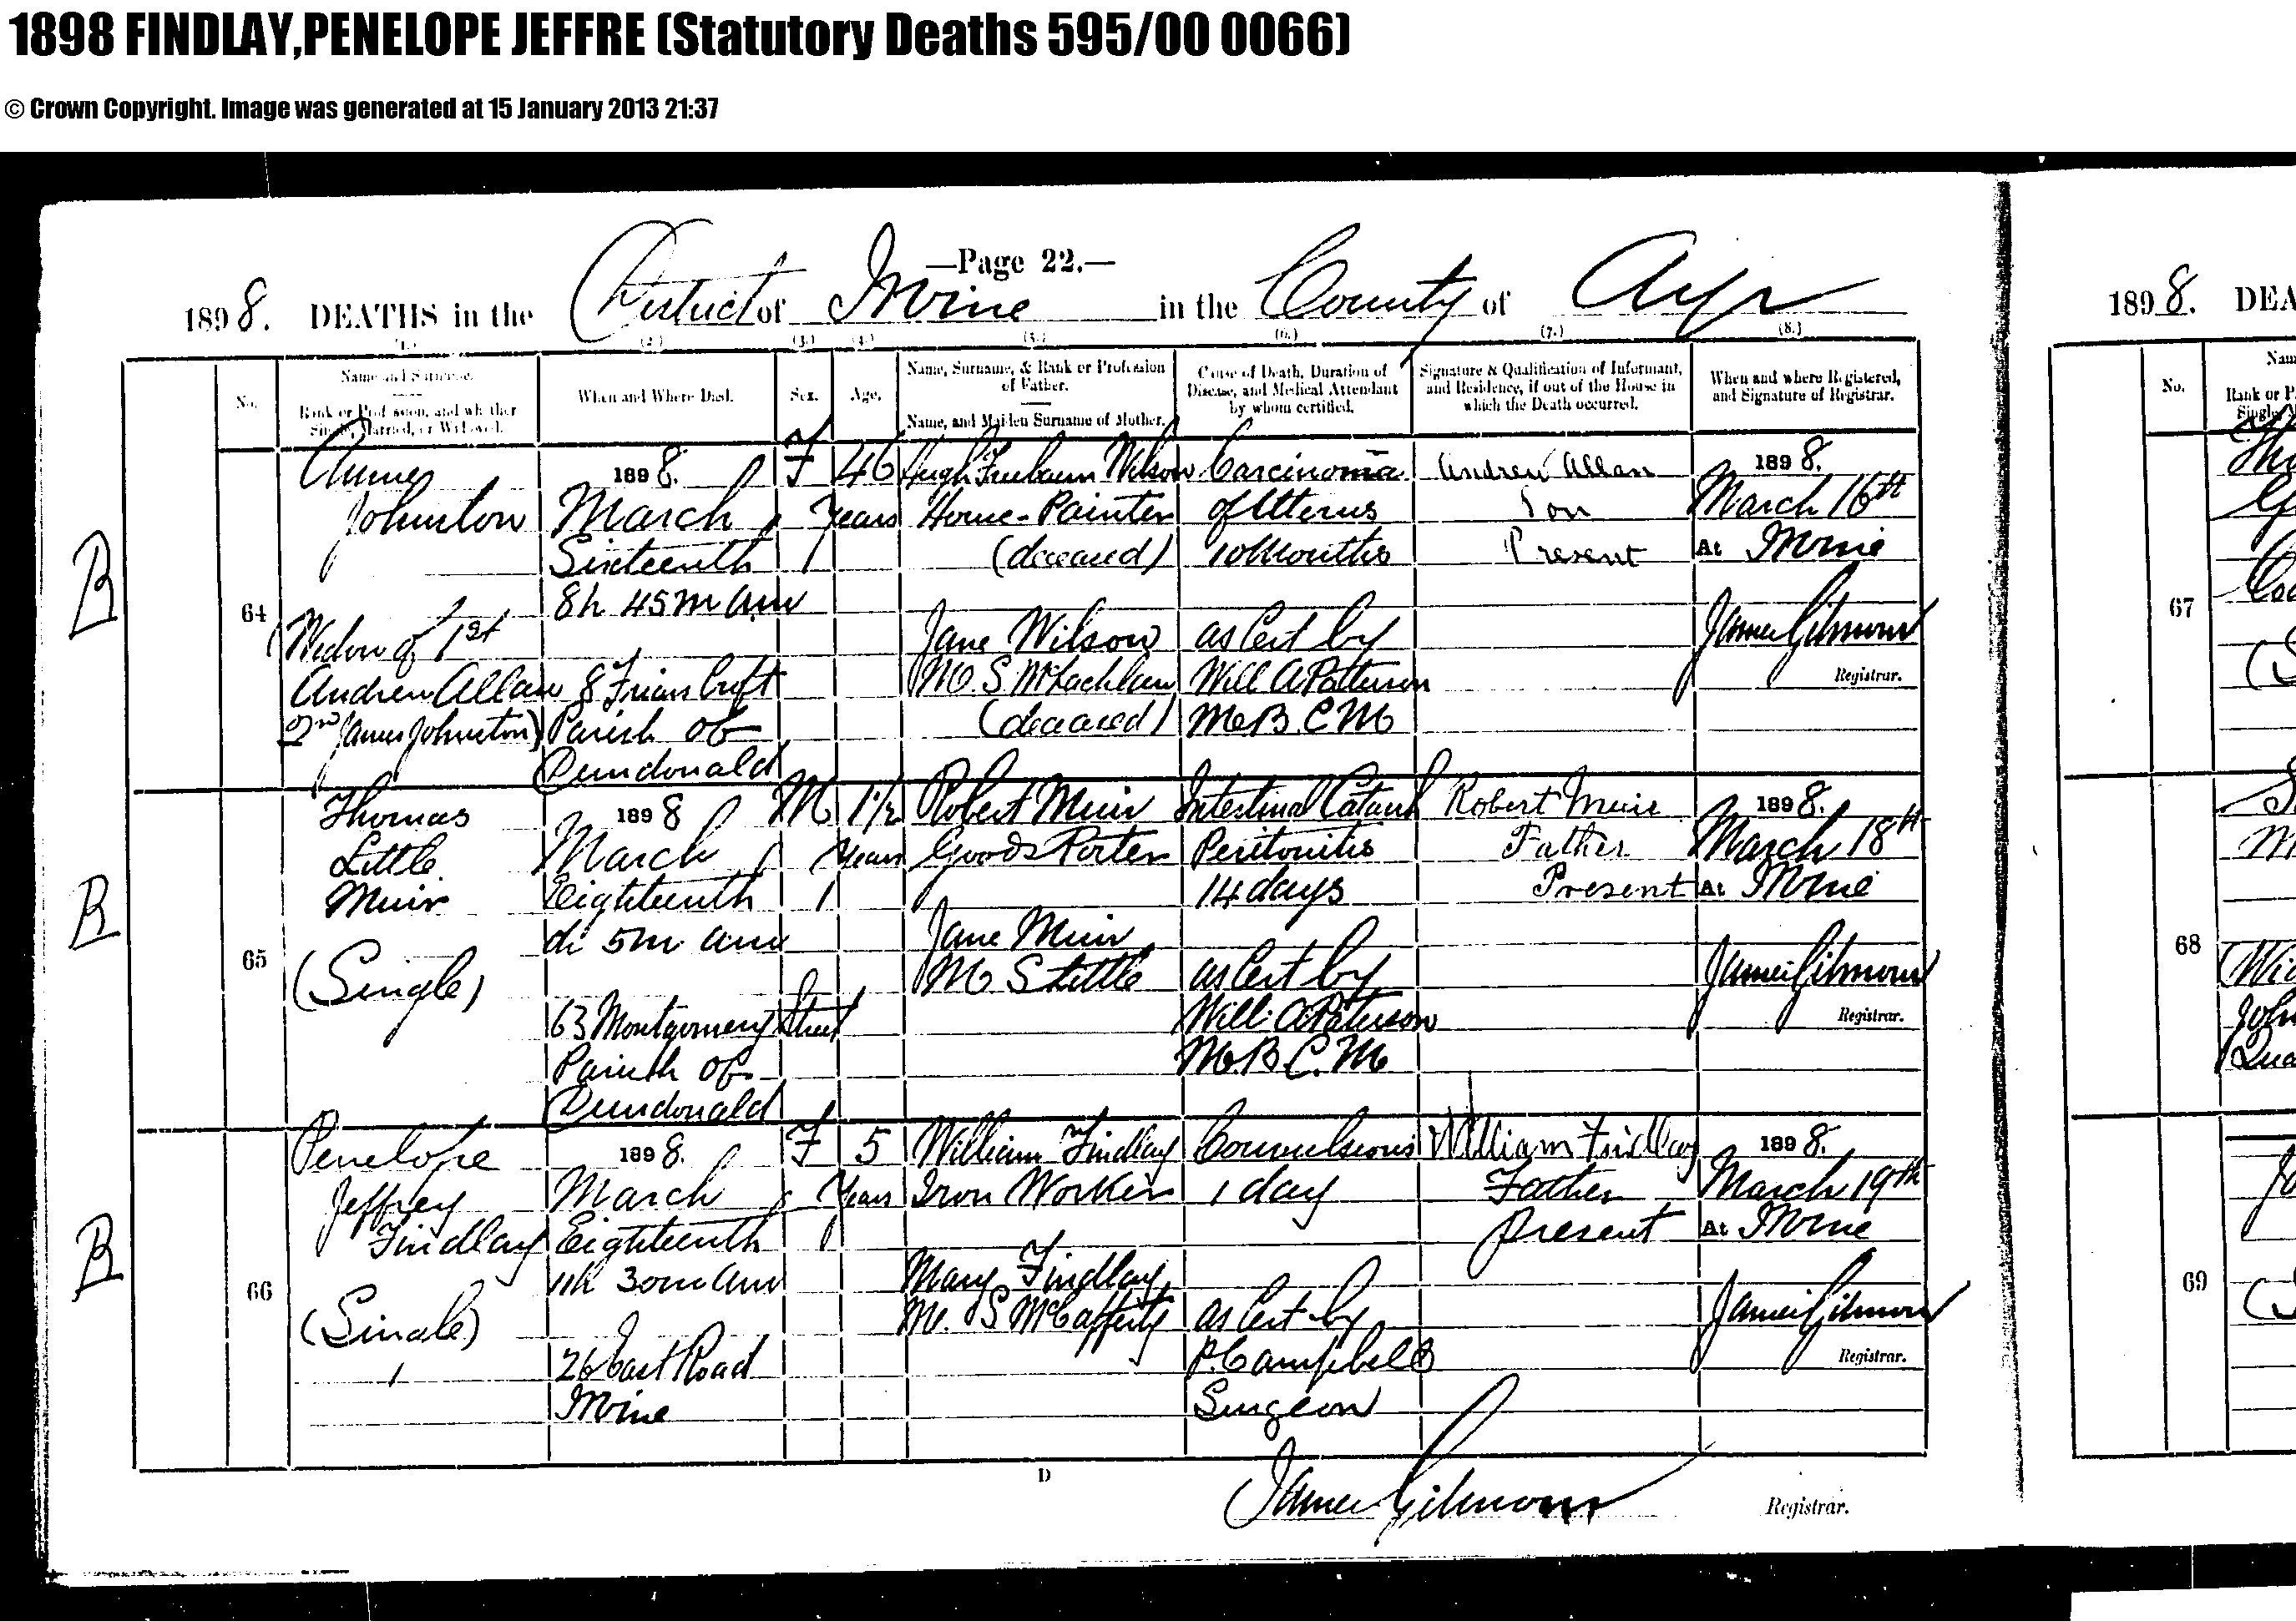 1898 FINDLAY,PENELOPE JEFFRE (Statutory Deaths 595/00 0066)
© Crown Copyright. Image was generated at 15 January 2013 21:37
—Page 22.—
1898. DEATHS in the District of Irvine in the County of Ayr
(1.) (2.) (3.) (4.) (5.) (6.) (7.) (8.)
No.
Name and Surname.
Rank or Profession, and whether
Single, Married, or Widowed.
When and Where Died.
Sex.
Age.
Name, Surname, & Rank or Profession
of Father.
Name, and Maiden Surname of Mother.
Cause of Death, Duration of
Disease, and Medical Attendant
by whom certified.
Signature & Qualification of Informant,
and Residence, if out of the House in
which the Death occurred.
When and where Registered,
and Signature of Registrar.
B
64
Annie
Johnston
(Widow of 1st
Andrew Allan
2nd James Johnston)
1898.
March
Sixteenth
8h 45m am
8 Friars Croft
Parish of
Dundonald
F
46
Years
Hugh Wilson
House-Painter
(deceased)
Jane Wilson
M.S McLachlan
(deceased)
Carcinoma
of Uterus
10 Months
as Cert by
Will A Patterson
M.B. C M
Andrew Allan
Son
Present
1898.
March 16th
At Irvine
James Gilmour
Registrar.
B
65
Thomas
Little
Muir
(Single)
1898
March
Eighteenth
5m am
63 Montgomery Street
Parish of
Dundonald
M
1½
Years
Robert Muir
Goods Porter
Jane Muir
M S Little
Intestinal Catarrh
Peritonitis
14 days
as Cert by
Will. A Paterson
M.B. C.M
Robert Muir
Father
Present
1898.
March 18th
At Irvine
James Gilmour
Registrar.
B
66
Penelope
Jeffrey
Findlay
(Single)
1898.
March
Eighteenth
11h 30m am
26 East Road
Irvine
F
5
Years
William Findlay
Iron Worker
Mary Findlay
M. S McCafferty
Convulsions
1 day
as Cert by
P. Campbell
Surgeon
William Findlay
Father
present
1898.
March 19th
At Irvine
James Gilmour
Registrar.
D
James Gilmour Registrar.
1898. DEA
No.
67
68
69